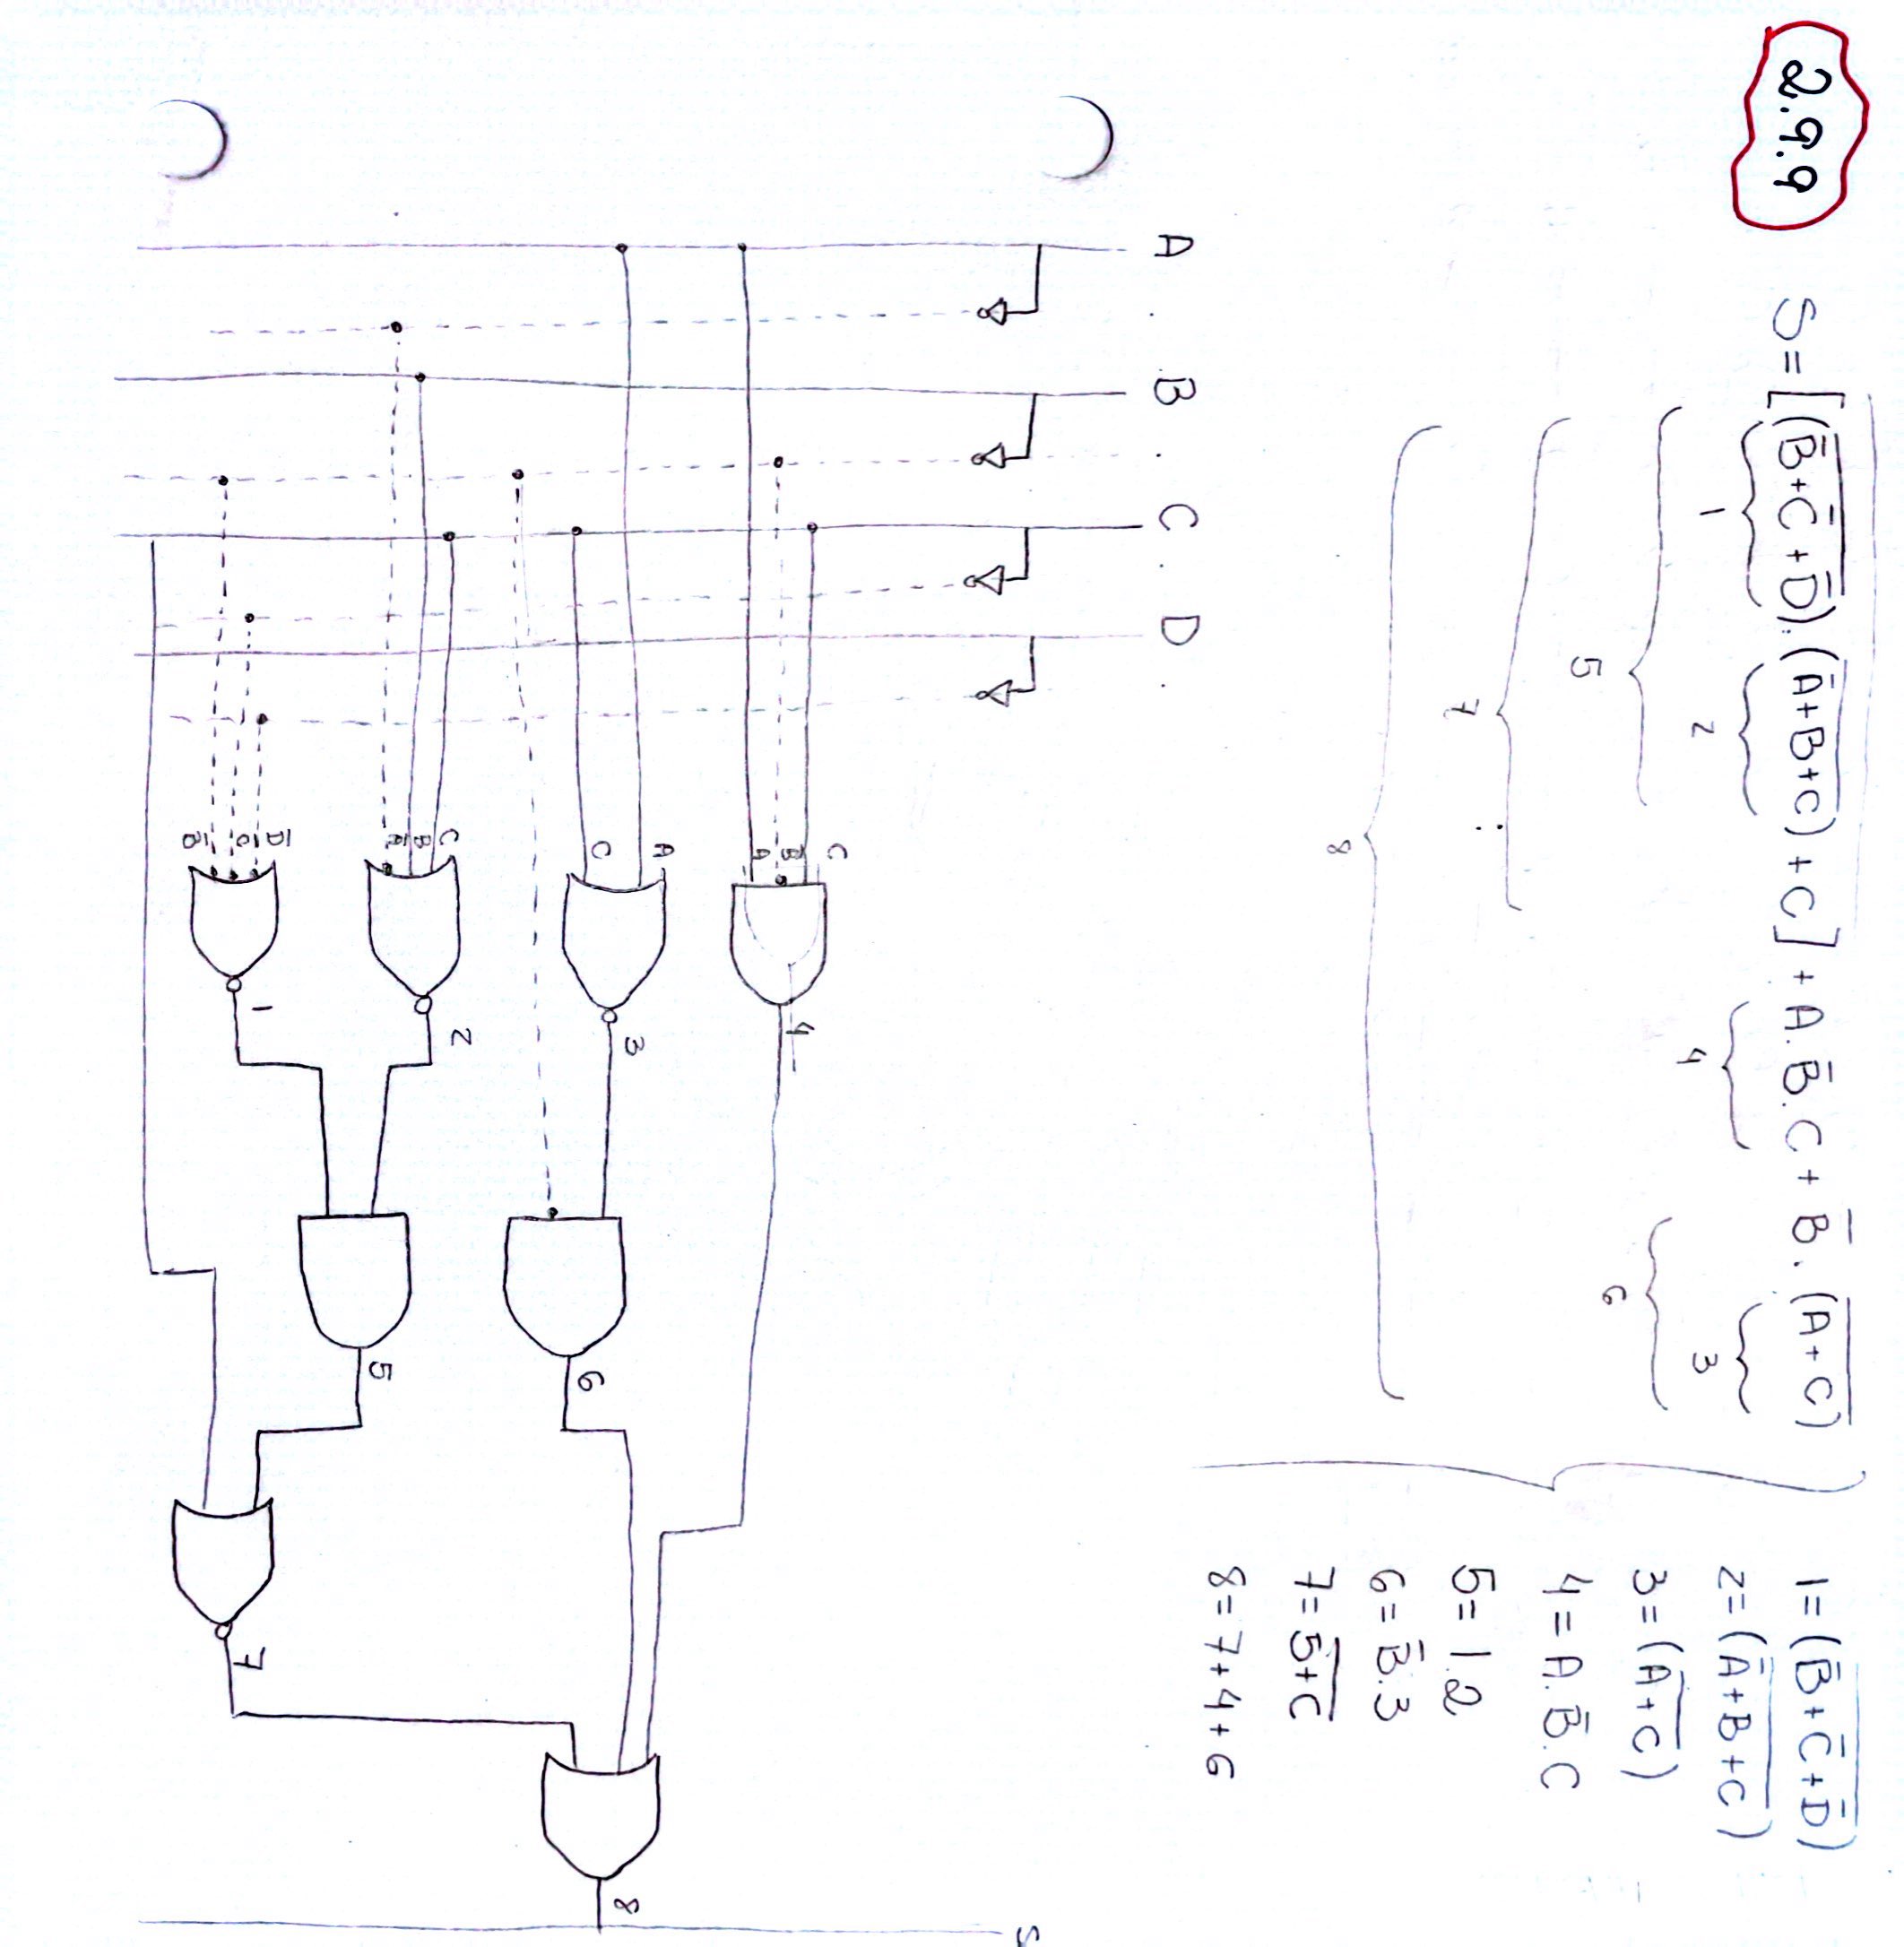 2.9.9 S = [(B̅+C̅+D̅)̅.(A̅+B+C)̅+C]̅ + A.B̅.C + B̅.(A+C)̅
1 2 4 3
5 6
7
8
1 = (B̅+C̅+D̅)̅
2 = (A̅+B+C)̅
3 = (A+C)̅
4 = A.B̅.C
5 = 1.2
6 = B̅.3
7 = 5+C̅
8 = 7+4+6
A . B . C . D .
S
C
B̅ 4
A
A 3
C
6
8
C 2
B
A̅
5
D̅
C̅ 1
B̅
7